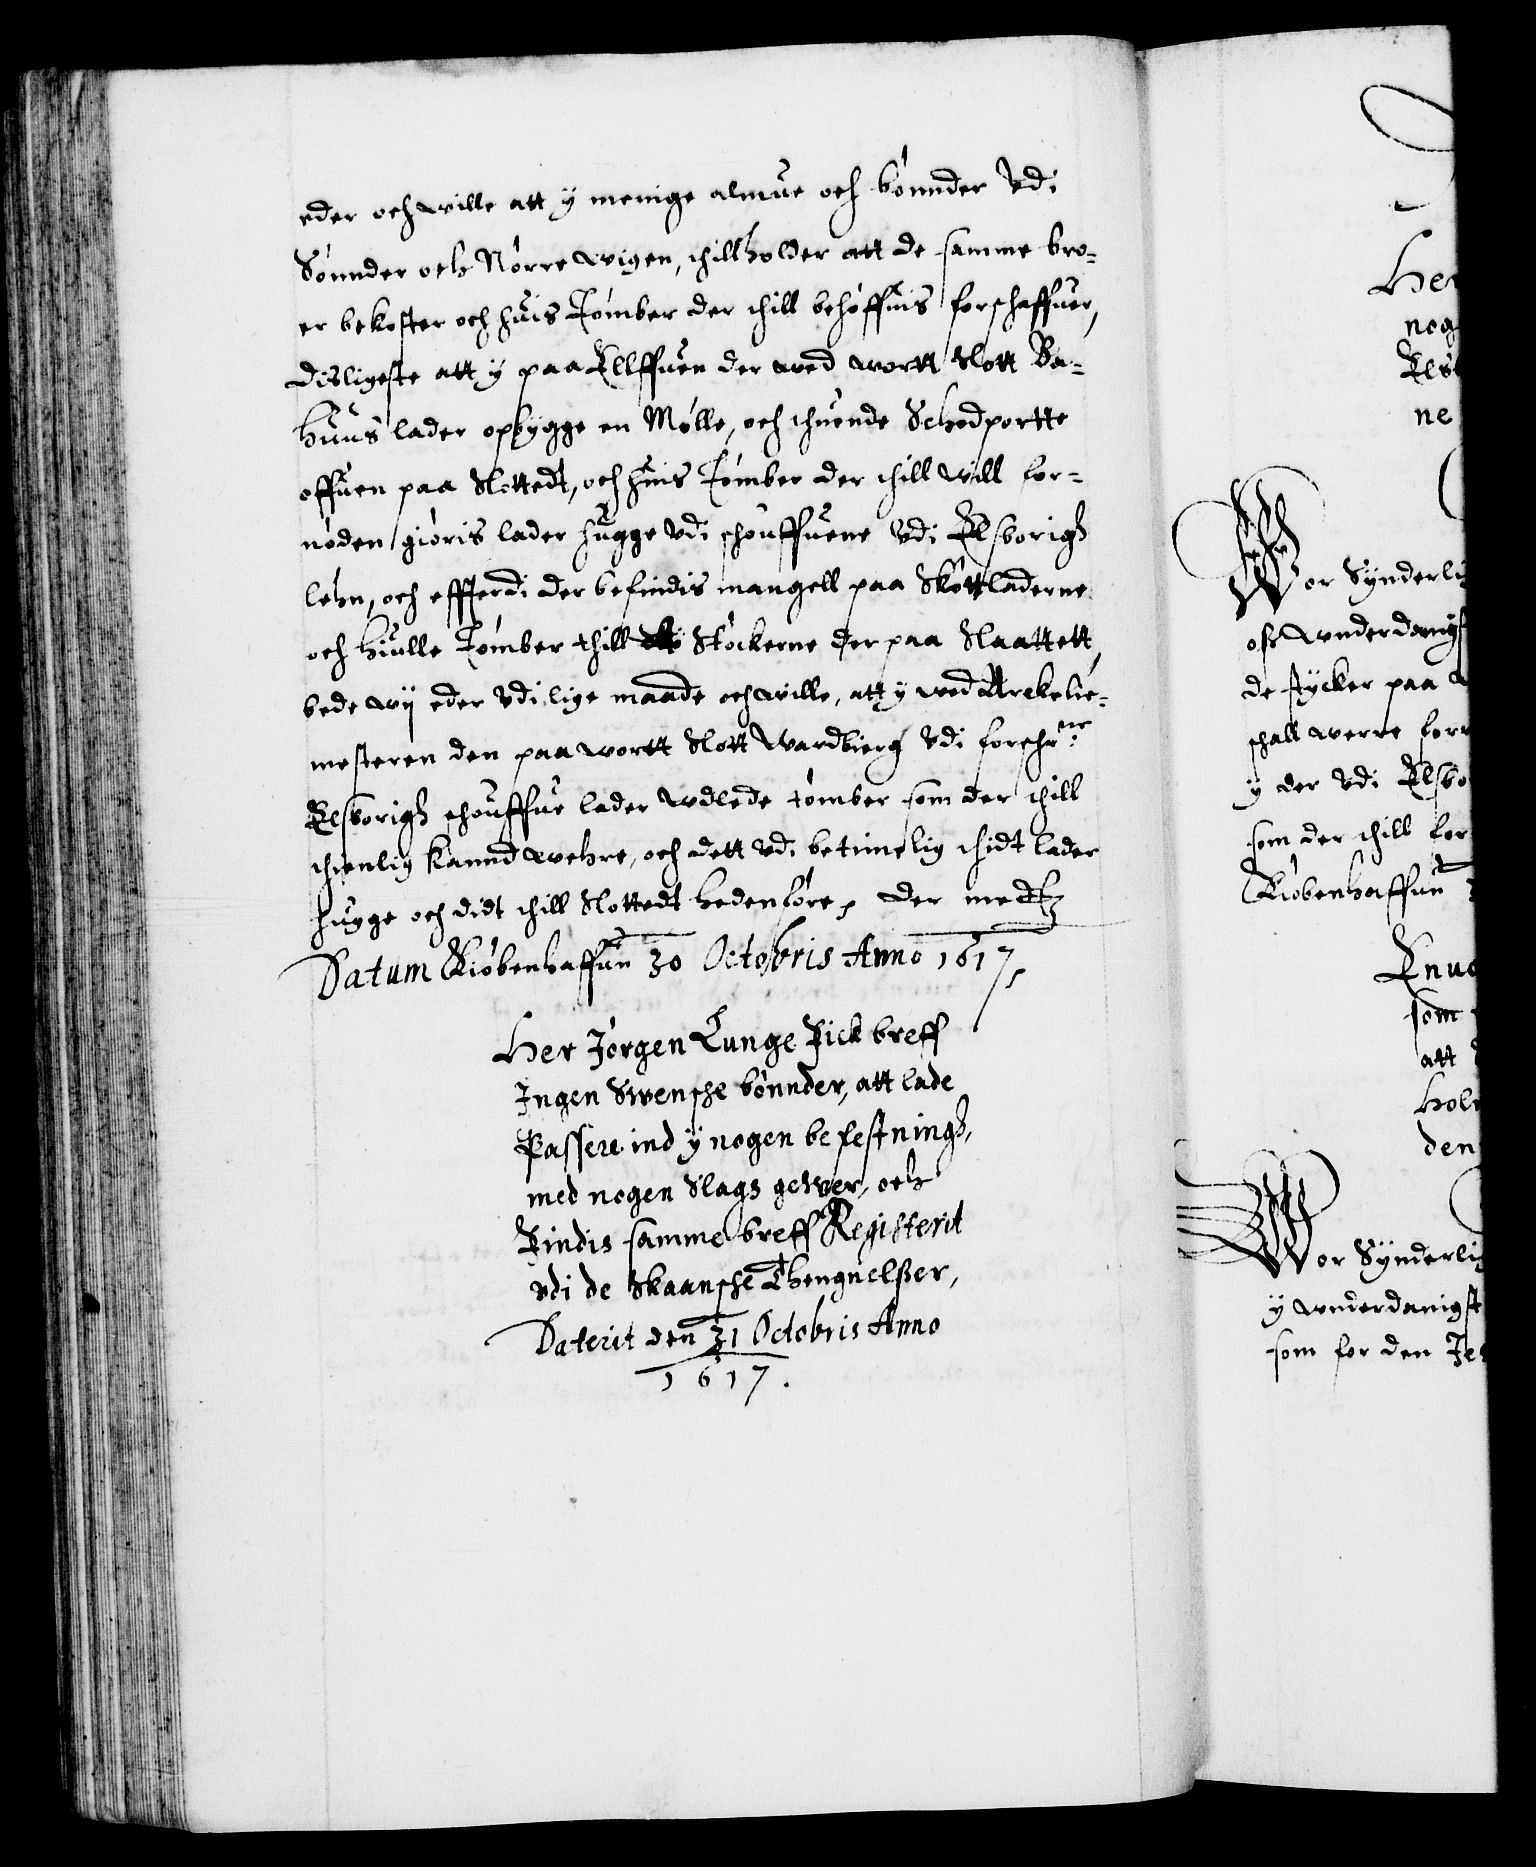 eder och wille att y menige almue och bønnder vdi
Sønnder och Nørre wigen, thillholder att de samme bro-
er bekoster och huis Tømber der thill behøffuis forschaffuer,
disligeste att y paa Ellffuen der wed wortt Slott Ba-
huus lader opbygge en Mølle, och thuende Schodportte
offuen paa Slottedt, och huis Tømber der thill will for-
nøden giøris lader hugge vdi schouffuene vdi Elsborigh
lehn, och effterdi der befindis mangell paa Skottladerne
och hiulle Tømber thill Støckerne der paa Slaattett,
bede wij eder vdi lige maade och wille, att y wed Arckelie-
mesteren den paa wortt Slott Wardbierg vdi forschr:ne
Elsborigh schouffue lader vdlede tømber som der thill
thienlig kannd wehre, och dett vdi betimelig thidt lader
hugge och didt thill Slottedt hedenføre, der medtz
Datum Kiøbenhaffun 30 Octobris Anno 1617,
Her Jørgen Lunge Fick breff
Ingen Swensche bønnder, att lade
Passere ind y nogen befestningh,
med nogen Slags gewer, och
Findis samme breff Registerit
vdi de Skaansche Thengnelsser,
Daterit den 31 Octobris Anno
1617.
Her
nog
Els
ne
Wor Synderli
oss wnderdanigst
de stycker paa
schall werre forr
y der vdi Elsbo
som der thill for
Kiøbenhaffun
Knud
som
att
hol
den
Wor Synderlig
y wnderdanigst
som for den Je